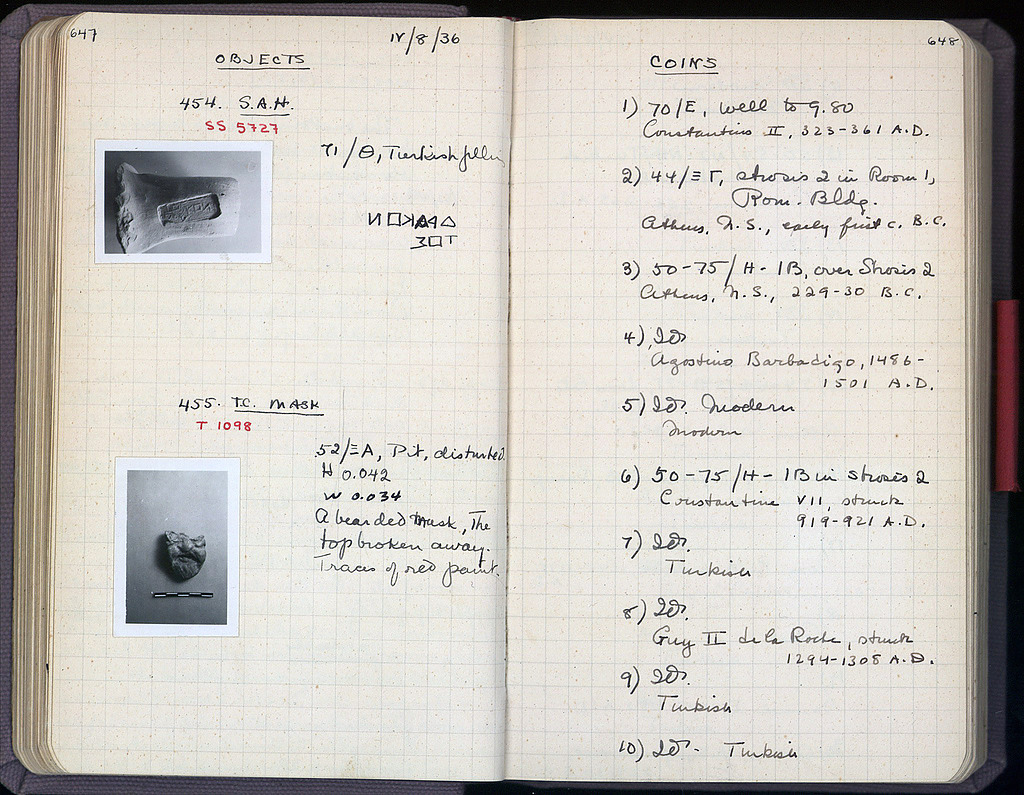 647
IV/8/36
OBJECTS
454. S.A.H.
SS 5727
71/Θ, Turkish fill
ΔΡΑΚΟΝ
ΤΟΣ
455. T.C. MASK
T 1098
52/ΞA, Pit, disturbed.
H 0.042
W 0.034
A bearded mask, The
top broken away.
Traces of red paint.
648
COINS
1) 70/E, well to 9.80
Constantius II, 323-361 A.D.
2) 44/ΞΓ, strosis 2 in Room 1,
Rom. Bldg.
Athens, N.S., early first c. B.C.
3) 50-75/H-IB, over Strosis 2
Athens, N.S., 229-30 B.C.
4) Id.
Agostino Barbadigo, 1486-
1501 A.D.
5) Id. Modern
Modern
6) 50-75/H-IB in strosis 2
Constantine VII, struck
919-921 A.D.
7) Id.
Turkish
8) Id.
Guy II de la Roche, struck
1294-1308 A.D.
9) Id.
Turkish
10) Id. Turkish